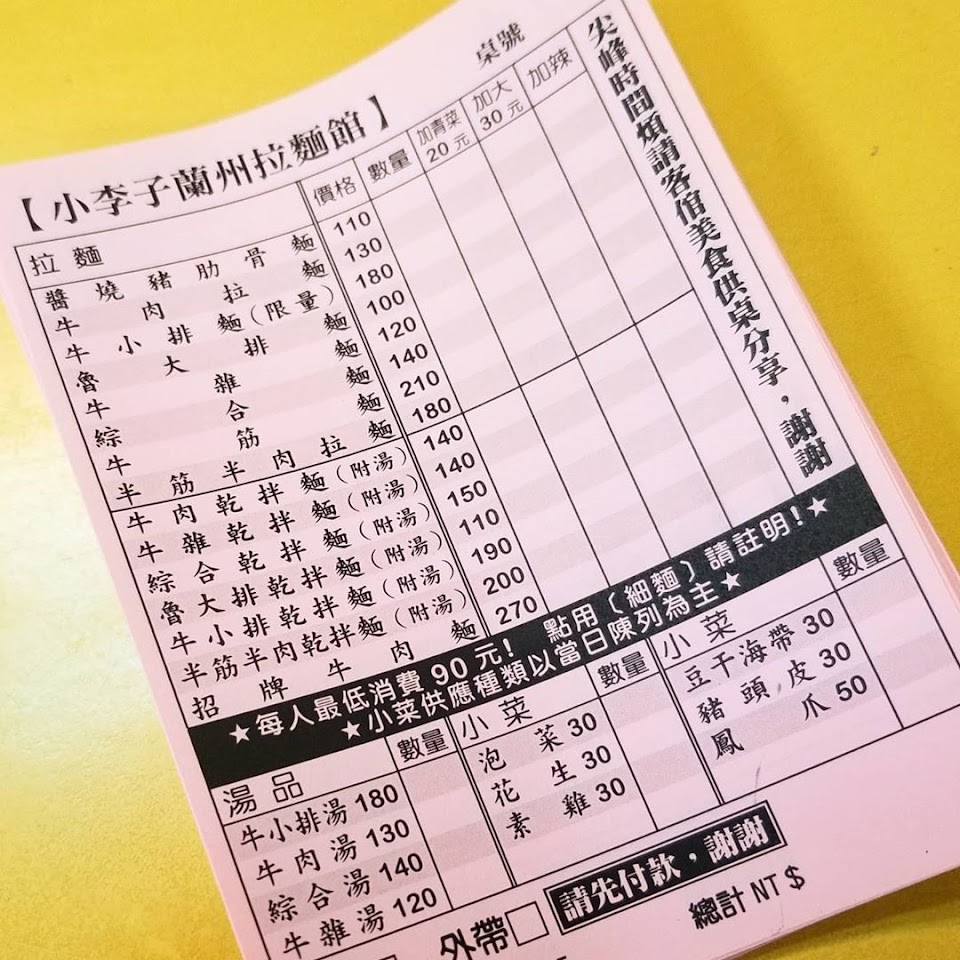 桌號
【小李子蘭州拉麵館】
拉麵 價格 數量 加青菜20元 加大30元 加辣
醬燒豬肋骨麵 110
牛肉拉麵 130
牛小排麵(限量) 180
魯大排麵 100
牛雜麵 120
綜合麵 140
牛筋麵 210
半筋半肉拉麵 180
牛肉乾拌麵(附湯) 140
牛雜乾拌麵(附湯) 140
綜合乾拌麵(附湯) 150
魯大排乾拌麵(附湯) 110
牛小排乾拌麵(附湯) 190
半筋半肉乾拌麵(附湯) 200
招牌牛肉麵 270
尖峰時間煩請客倌美食供桌分享，謝謝
★每人最低消費90元！ 點用（細麵）請註明！★
★小菜供應種類以當日陳列為主★
湯品 數量
牛小排湯 180
牛肉湯 130
綜合湯 140
牛雜湯 120
小菜 數量
泡菜 30
花生 30
素雞 30
小菜 數量
豆干海帶 30
豬頭皮 30
鳳爪 50
外帶□
請先付款，謝謝
總計 NT $